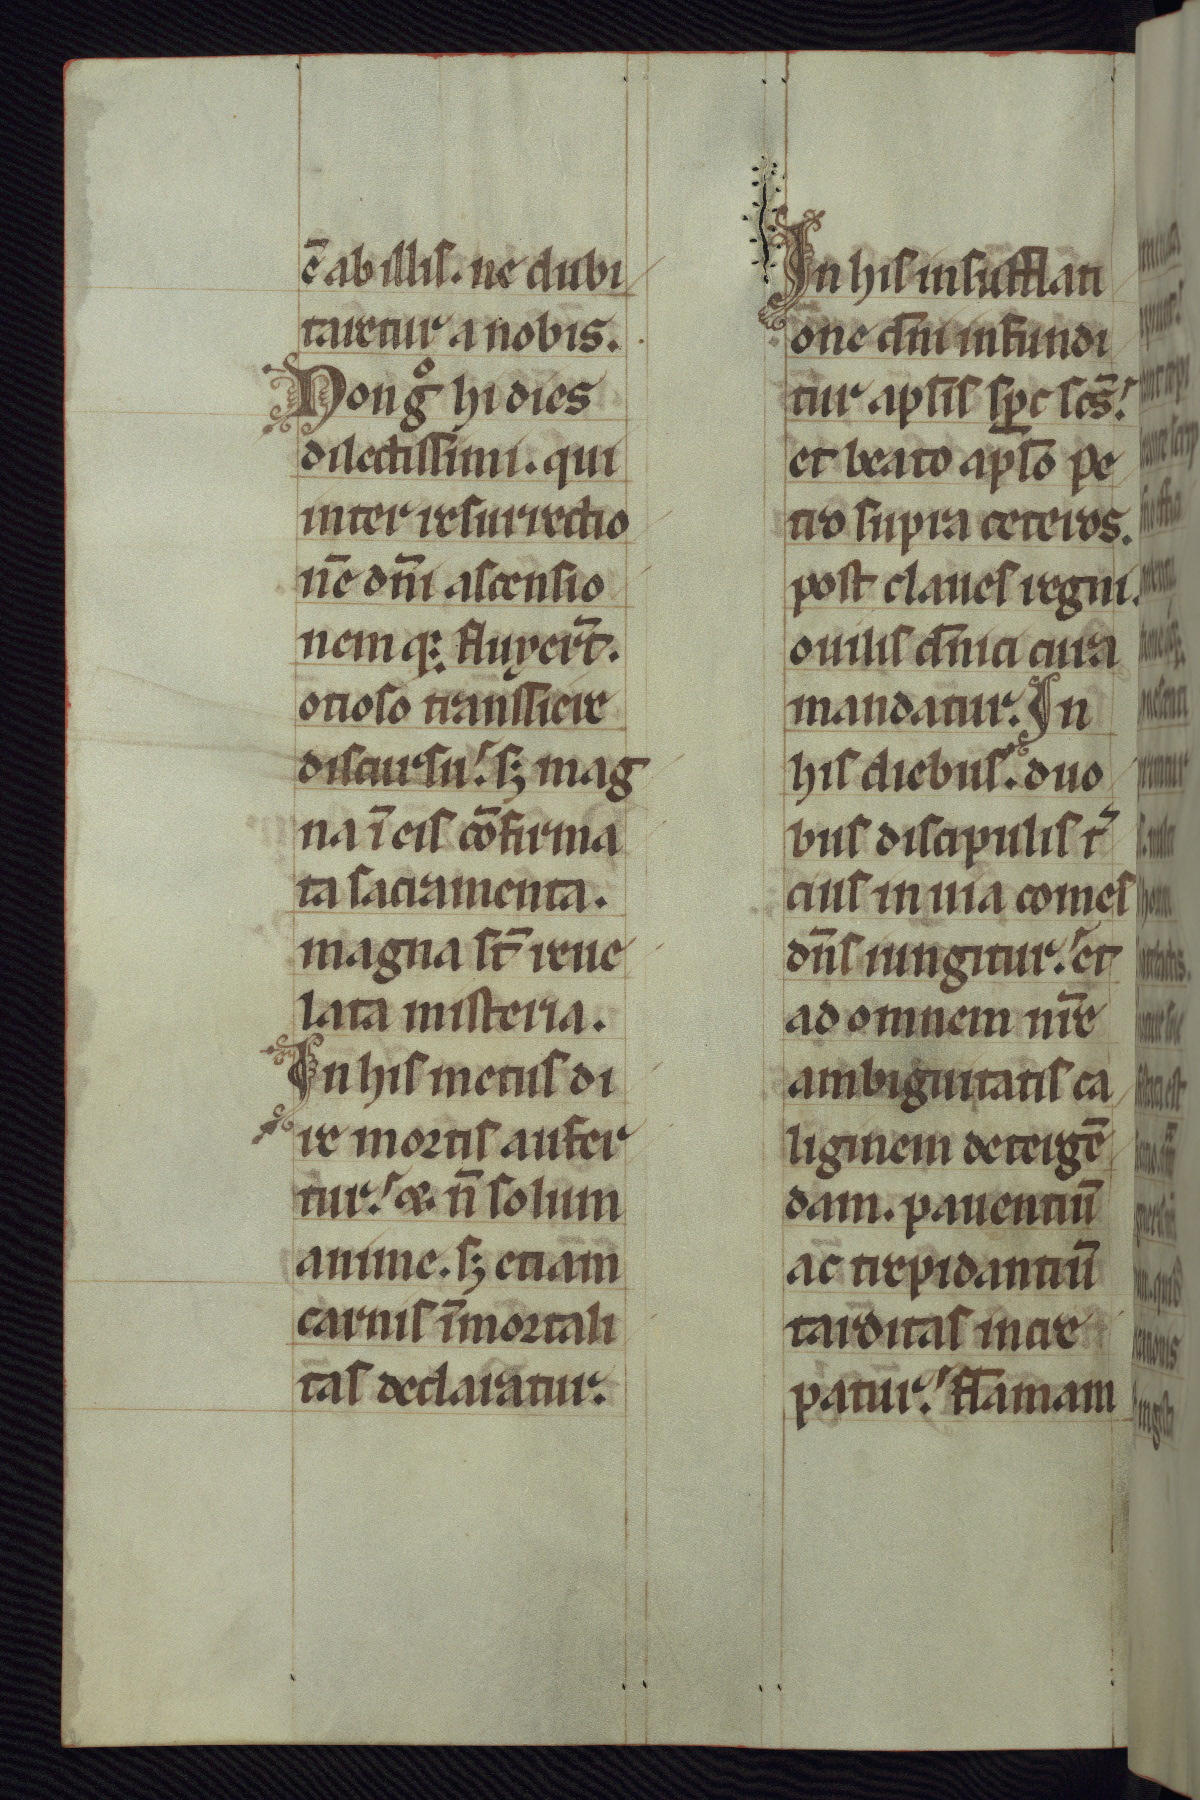 ē ab illis. ne dubi
taretur a nobis.
Non gͦ hi dies
dilectissimi. qui
inter resurrectio
nē dn̄i ascensio
nem q; fluxer̄t.
otioso transsiere
discursu. sꝫ mag
na ī eis cōfirma
ta sacramenta.
magna st̄ reue
lata misteria.
In his metus di
re mortis aufer
tur. ⁊ n̄ solum
anime. sꝫ etiam
carnis īmortali
tas declaratur.
In his insufflati
one dn̄i infundi
tur apl̄is sp̄c sc̄s.
et beato apl̄o pe
tro supra ceteros.
post claues regni.
ouilis dn̄ici cura
mandatur. In
his diebus. duo
bus discipulis t͛
cius in uia comes
dn̄s iungitur. et
ad omnem nr̄e
ambiguitatis ca
liginem detergē
dam. pauentiū
ac trepidantiū
tarditas incre
patur. flāmam